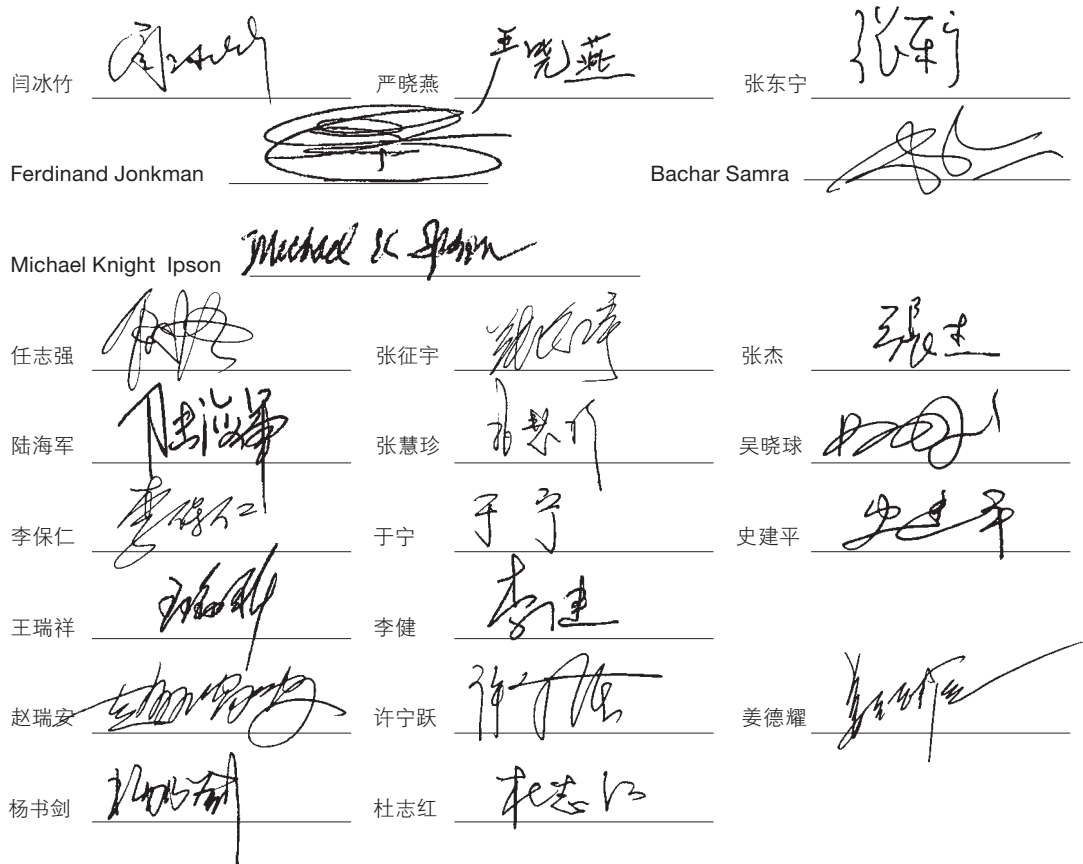 闫冰竹 严晓燕 严晓燕 张东宁
Ferdinand Jonkman Bachar Samra
Michael Knight Ipson Michael K Ipson
任志强 张征宇 张杰 张杰
陆海军 陆海军 张慧珍 吴晓球
李保仁 李保仁 于宁 于宁 史建平 史建平
王瑞祥 李健 李健
赵瑞安 许宁跃 姜德耀
杨书剑 杜志红 杜志红